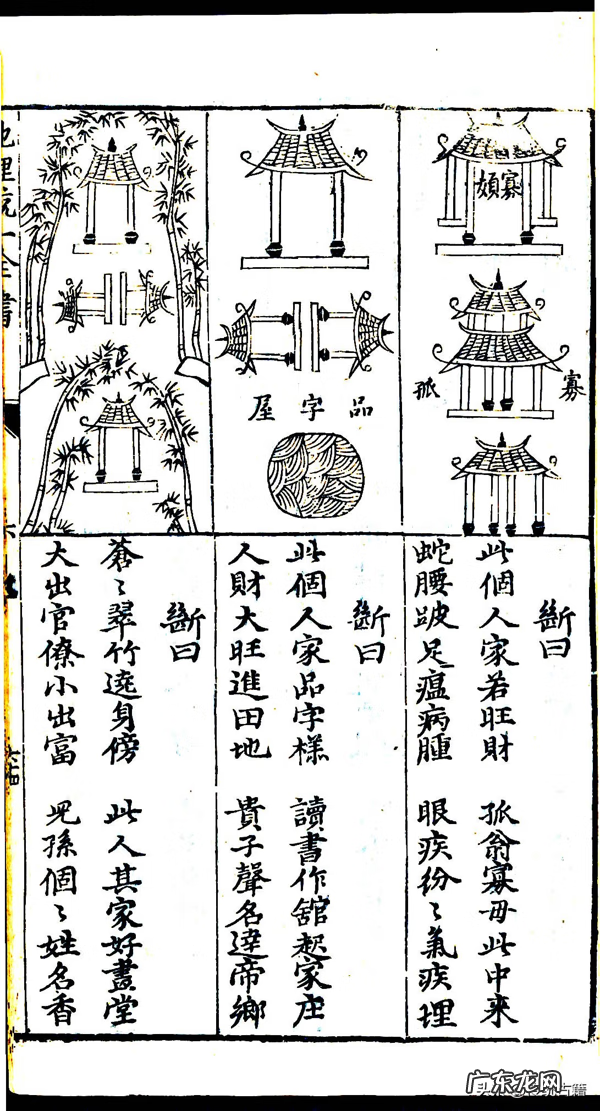 寡婦
孤 寡
斷曰
此個人家若旺財 孤翁寡母此中来
蛇腰跛足瘟病腫 眼疾紛〻氣疾埋
品字屋
斷曰
此個人家品字樣 讀書作舘起家庄
人財大旺進田地 貴子聲名達帝鄉
斷曰
蒼〻翠竹遶身傍 此人其家好畫堂
大出官僚小出富 児孫個〻姓名香
地理統一全書
六
广东龙网